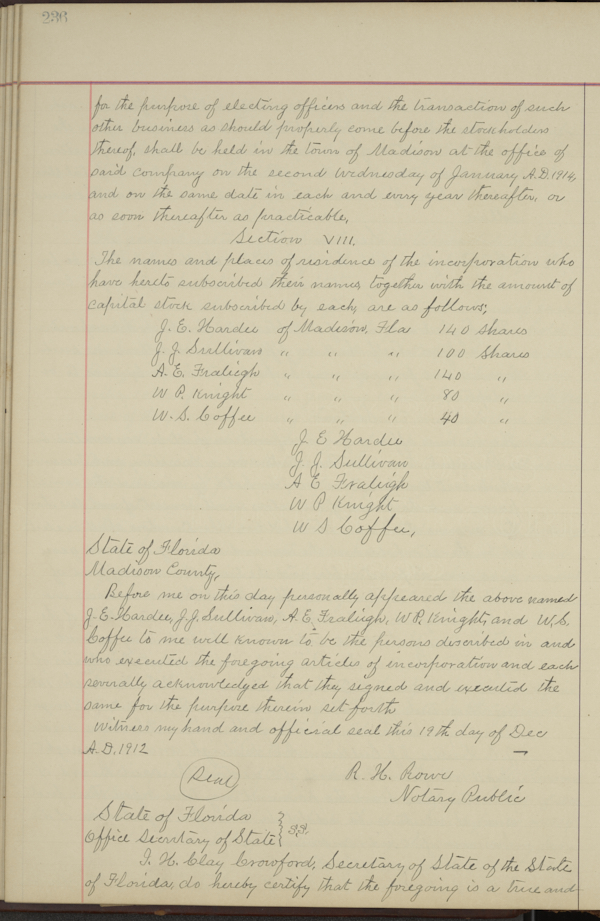 236
for the purpose of electing officers and the transaction of such
other business as should properly come before the stockholders
thereof, shall be held in the town of Madison at the office of
said company on the second Wednesday of January A.D. 1914,
and on the same date in each and every year thereafter, or
as soon thereafter as practicable.
Section VIII.
The names and places of residence of the incorporation who
have hereto subscribed their names, together with the amount of
capital stock subscribed by each, are as follows;
J. E. Hardee of Madison, Fla 140 Shares
J. J. Sullivan " " " 100 Shares
A. E. Fraleigh " " " 140 "
W P. Knight " " " 80 "
W. S. Coffee " " " 40 "
J E Hardee
J. J. Sullivan
A E Fraleigh
W P Knight
W S Coffee,
State of Florida
Madison County,
Before me on this day personally appeared the above named
J. E. Hardee, J. J. Sullivan, A. E. Fraleigh, W P. Knight, and W. S.
Coffee to me well known to be the persons described in and
who executed the foregoing articles of incorporation and each
severally acknowledged that they signed and executed the
same for the purpose therein set forth
Witness my hand and official seal this 19th day of Dec
A.D. 1912
(Seal) R. H. Rowe
Notary Public
State of Florida
Office Secretary of State } SS.
I. H. Clay Crawford, Secretary of State of the State
of Florida, do hereby certify that the foregoing is a true and